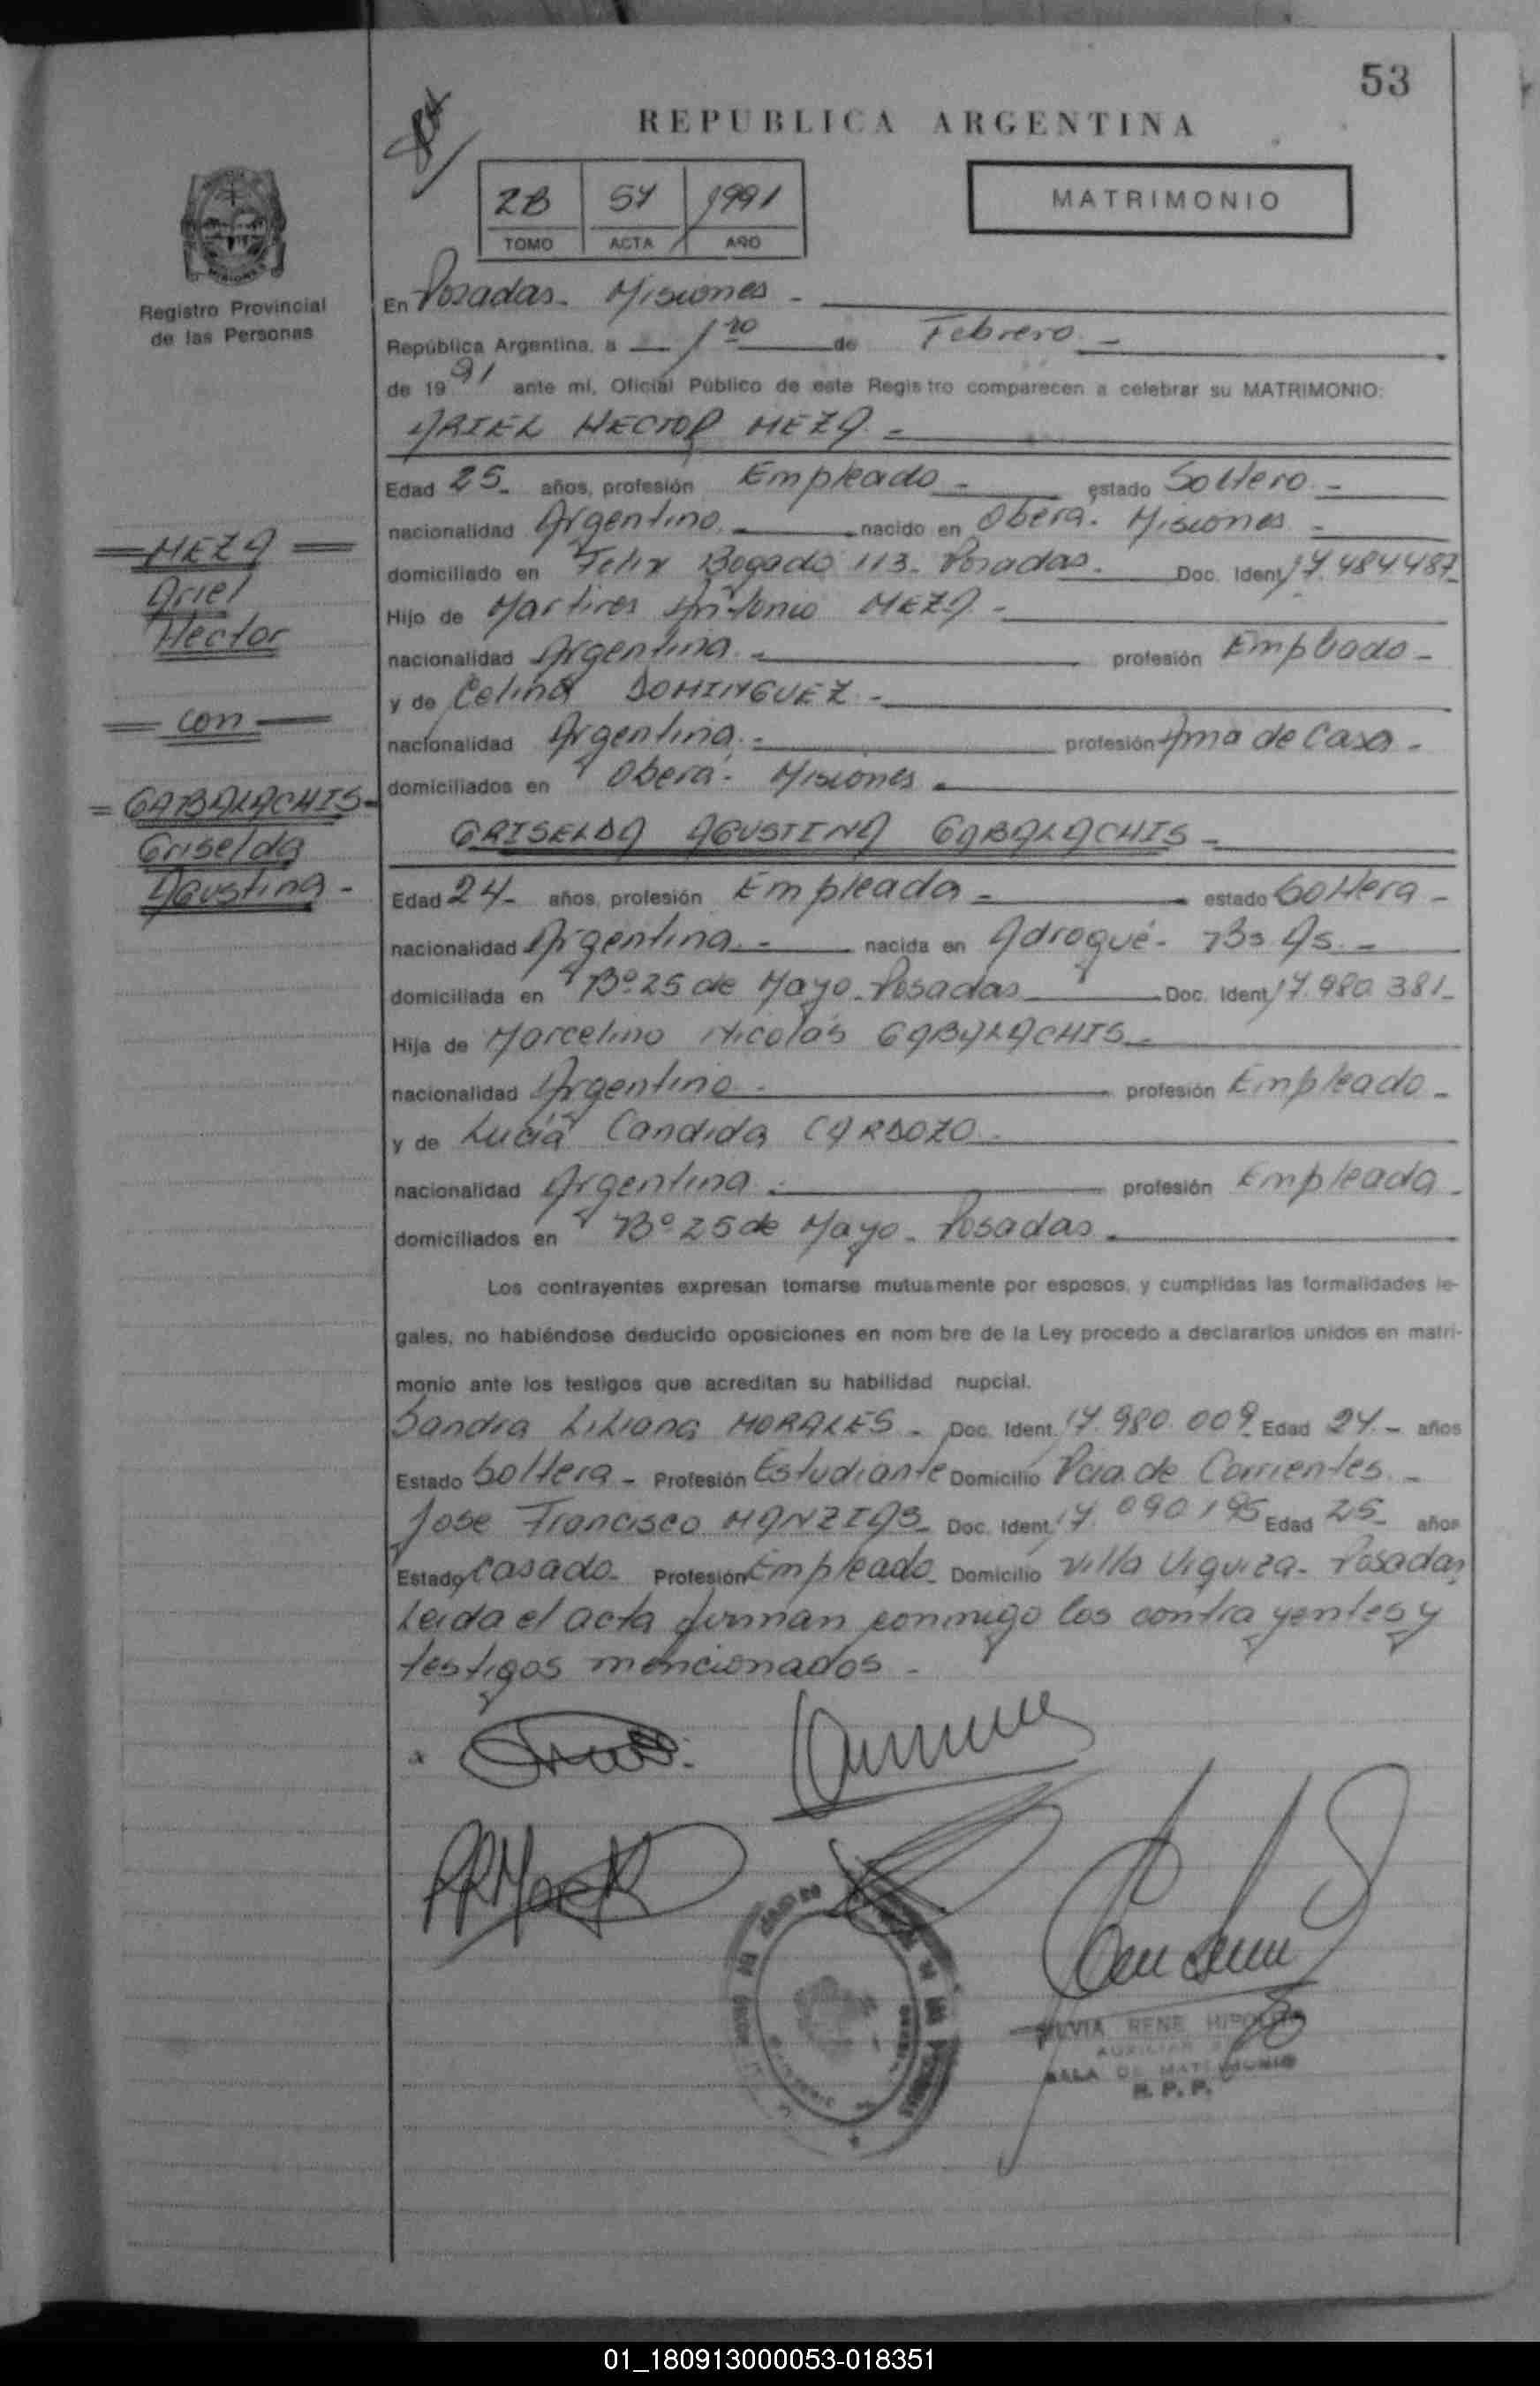 53
REPUBLICA ARGENTINA
MATRIMONIO
2B 54 1991
TOMO ACTA AÑO
Registro Provincial
de las Personas
En Posadas - Misiones -
República Argentina, a 1ro de Febrero -
de 1991 ante mi, Oficial Público de este Registro comparecen a celebrar su MATRIMONIO:
ARIEL HECTOR MEZA -
Edad 25- años, profesión Empleado - estado Soltero -
nacionalidad Argentino - nacido en Oberá - Misiones -
domiciliado en Felix Bogado 113 - Posadas - Doc. Ident. 17.484487-
Hijo de Martires Antonio MEZA -
nacionalidad Argentina - profesión Empleado -
y de Celina DOMINGUEZ -
nacionalidad Argentina - profesión Ama de Casa -
domiciliados en Oberá - Misiones -
GRISELDA AGUSTINA GABALACHIS -
Edad 24- años, profesión Empleada - estado Soltera -
nacionalidad Argentina - nacida en Adrogué - Bs. As. -
domiciliada en Bº 25 de Mayo - Posadas Doc. Ident. 17.980.381-
Hija de Marcelino Nicolás GABALACHIS -
nacionalidad Argentino - profesión Empleado -
y de Lucía Candida CARDOZO -
nacionalidad Argentina - profesión Empleada -
domiciliados en Bº 25 de Mayo - Posadas -
Los contrayentes expresan tomarse mutuamente por esposos, y cumplidas las formalidades le-
gales, no habiéndose deducido oposiciones en nombre de la Ley procedo a declararlos unidos en matri-
monio ante los testigos que acreditan su habilidad nupcial.
Sandra Liliana MORALES - Doc. Ident. 17.980.009 Edad 24 - años
Estado Soltera - Profesión Estudiante Domicilio Pcia. de Corrientes -
Jose Francisco MANZIAS - Doc. Ident. 17.090195 Edad 25- años
Estado Casado - Profesión Empleado - Domicilio Villa Urquiza - Posadas
Leida el acta firman conmigo los contrayentes y
testigos mencionados -
MEZA
Ariel
Hector
con
GABALACHIS -
Griselda
Agustina -
SILVIA RENE HIPOLITO
AUXILIAR
SALA DE MATRIMONIO
R. P. P.
01_180913000053-018351